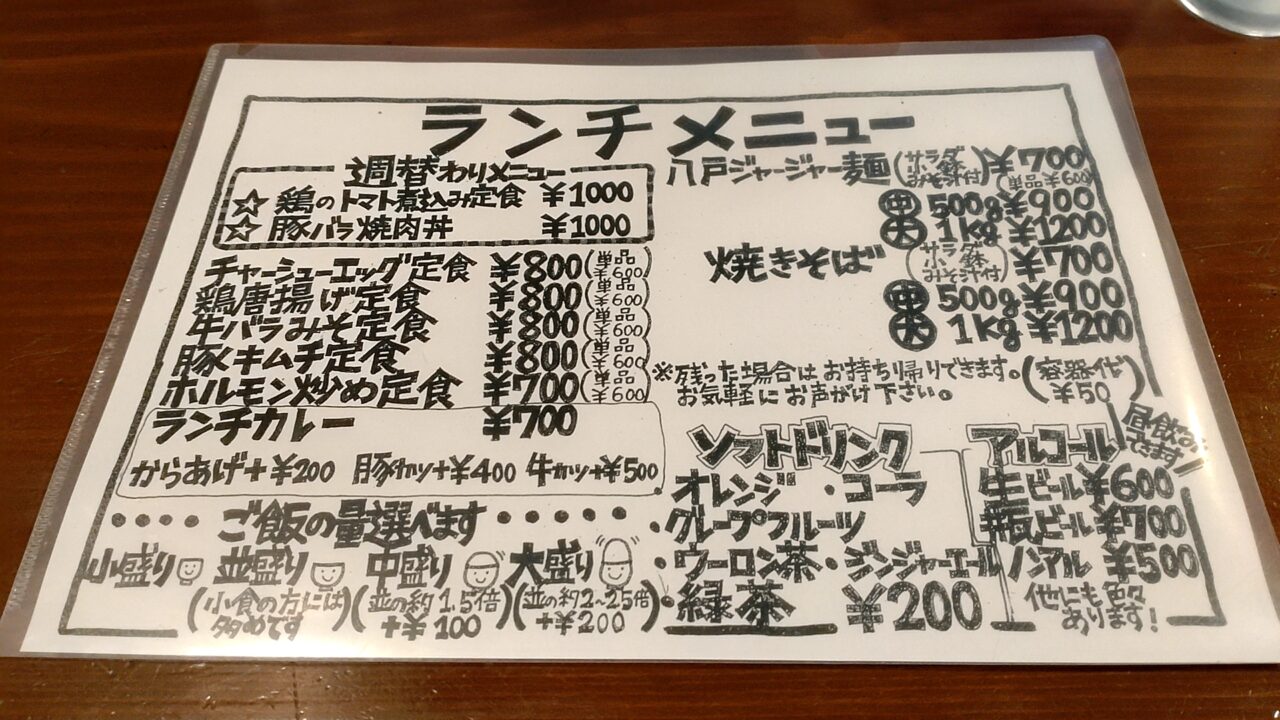 ランチメニュー
週替わりメニュー
☆ 鶏のトマト煮込み定食 ¥1000
☆ 豚バラ焼肉丼 ¥1000
チャーシューエッグ定食 ¥800(単品¥600)
鶏唐揚げ定食 ¥800(単品¥600)
牛バラみそ定食 ¥800(単品¥600)
豚キムチ定食 ¥800(単品¥600)
ホルモン炒め定食 ¥700(単品¥600)
ランチカレー ¥700
からあげ+¥200 豚カツ+¥400 牛カツ+¥500
・・・・ご飯の量選べます・・・・・
小盛り 並盛り 中盛り 大盛り
(小食の方には多めです) (並の約1.5倍 +¥100) (並の約2~2.5倍 +¥200)
八戸ジャージャー麺(サラダ 小鉢 みそ汁付)¥700(単品¥600)
中 500g ¥900
大 1kg ¥1200
焼きそば(サラダ 小鉢 みそ汁付)¥700
中 500g ¥900
大 1kg ¥1200
※残った場合はお持ち帰りできます。(容器代 ¥50)
お気軽にお声がけ下さい。
ソフトドリンク
オレンジ ・コーラ
・グレープフルーツ
・ウーロン茶・ジンジャーエール
・緑茶 ¥200
アルコール
昼飲みできます
生ビール¥600
瓶ビール¥700
ノンアル ¥500
他にも色々あります!